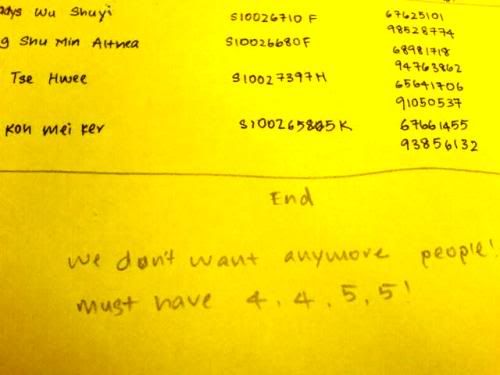 Wu Shuyi S10026710F 67625101
98528774
Shu Min Althea S10026680F 68981718
94763862
Tse Hwee S10027397H 65641706
91050537
Koh Mei Ker 67661455
93856132
End
We don't want anymore people!
Must have 4, 4, 5, 5!